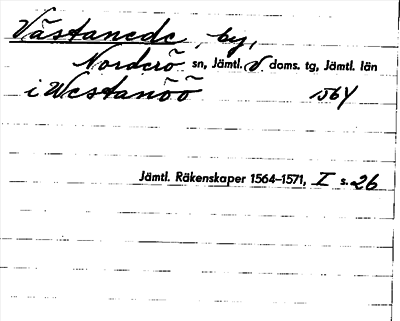 Västanede, by,
Norderö sn, Jämtl. V. doms. tg, Jämtl. län
i Westanöö 1564
Jämtl. Räkenskaper 1564–1571, I s. 26